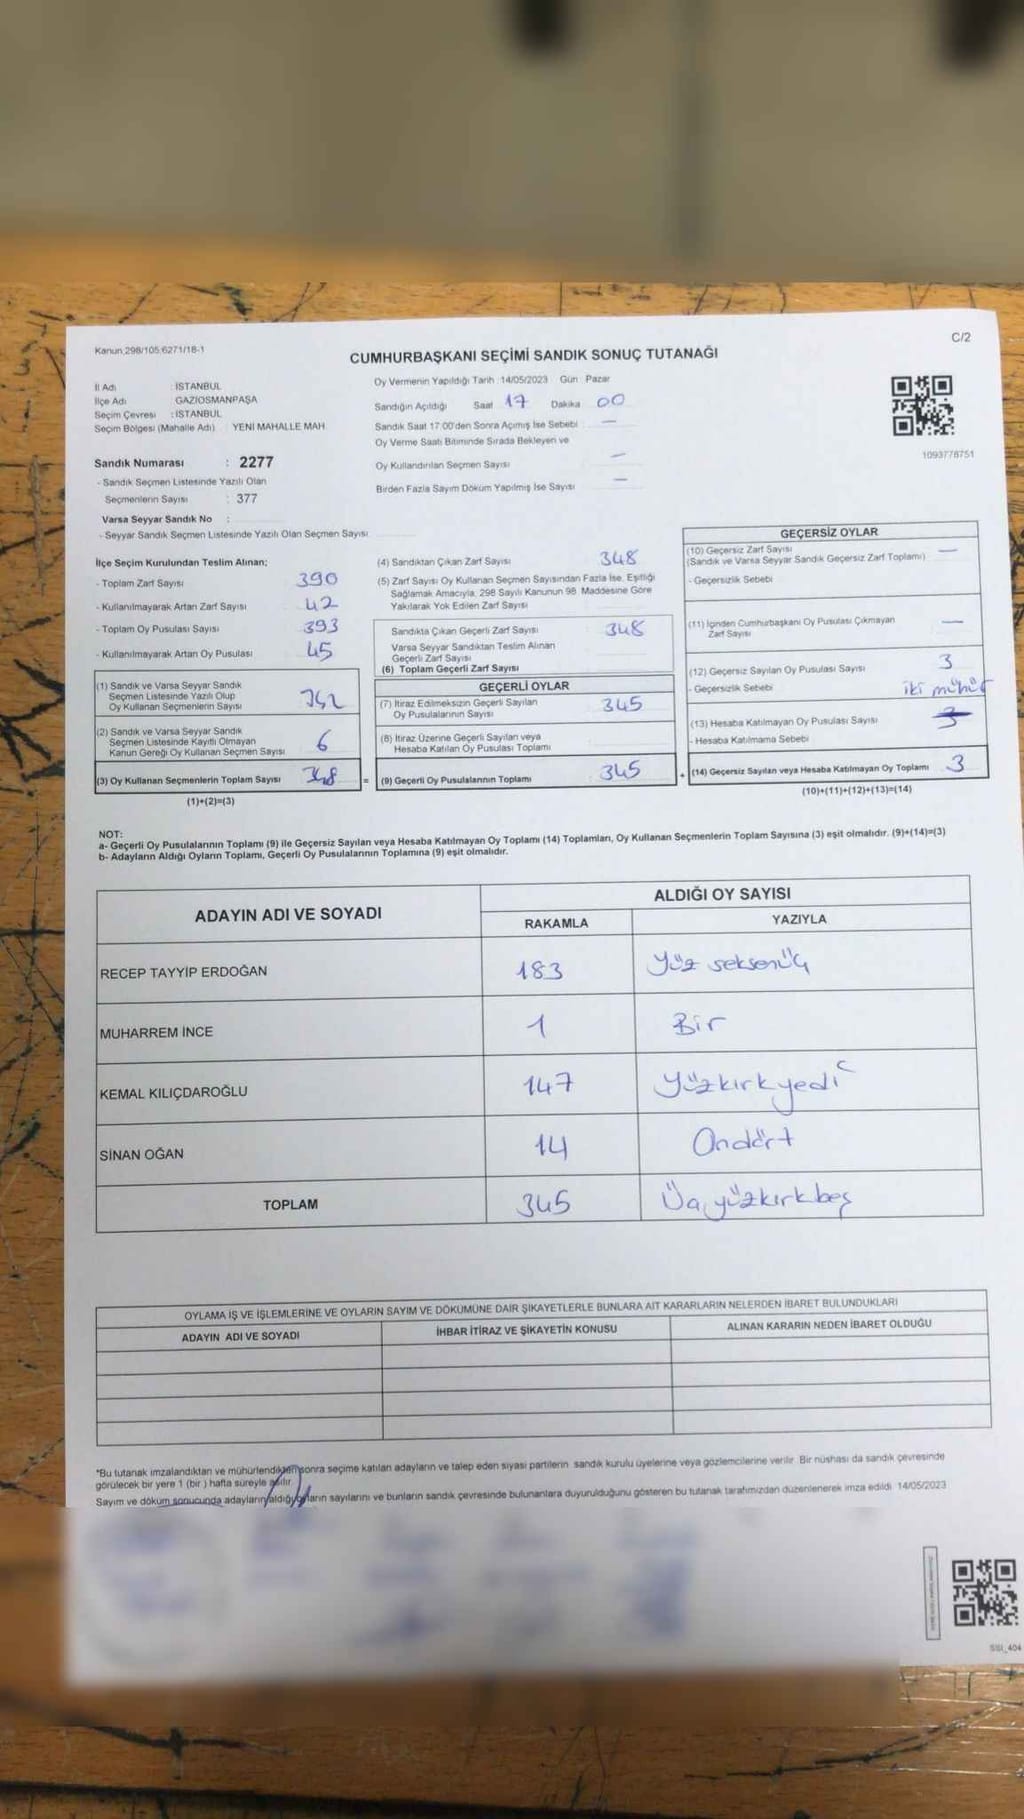 Kanun,298/105,6271/18-1
C/2
CUMHURBAŞKANI SEÇİMİ SANDIK SONUÇ TUTANAĞI
İl Adı : İSTANBUL
İlçe Adı : GAZİOSMANPAŞA
Seçim Çevresi : İSTANBUL
Seçim Bölgesi (Mahalle Adı) YENİ MAHALLE MAH.
Sandık Numarası : 2277
- Sandık Seçmen Listesinde Yazılı Olan
Seçmenlerin Sayısı : 377
Varsa Seyyar Sandık No :
- Seyyar Sandık Seçmen Listesinde Yazılı Olan Seçmen Sayısı
Oy Vermenin Yapıldığı Tarih :14/05/2023 Gün Pazar
Sandığın Açıldığı Saat 17 Dakika 00
Sandık Saat 17.00'den Sonra Açımış İse Sebebi —
Oy Verme Saati Bitiminde Sırada Bekleyen ve
Oy Kullandırılan Seçmen Sayısı —
Birden Fazla Sayım Döküm Yapılmış İse Sayısı —
1093778751
İlçe Seçim Kurulundan Teslim Alınan;
- Toplam Zarf Sayısı 390
- Kullanılmayarak Artan Zarf Sayısı 42
- Toplam Oy Pusulası Sayısı 393
- Kullanılmayarak Artan Oy Pusulası 45
(1) Sandık ve Varsa Seyyar Sandık
Seçmen Listesinde Yazılı Olup
Oy Kullanan Seçmenlerin Sayısı 342
(2) Sandık ve Varsa Seyyar Sandık
Seçmen Listesinde Kayıtlı Olmayan
Kanun Gereği Oy Kullanan Seçmen Sayısı 6
(3) Oy Kullanan Seçmenlerin Toplam Sayısı 348
(1)+(2)=(3)
(4) Sandıktan Çıkan Zarf Sayısı 348
(5) Zarf Sayısı Oy Kullanan Seçmen Sayısından Fazla İse, Eşitliği
Sağlamak Amacıyla, 298 Sayılı Kanunun 98. Maddesine Göre
Yakılarak Yok Edilen Zarf Sayısı
Sandıkta Çıkan Geçerli Zarf Sayısı 348
Varsa Seyyar Sandıktan Teslim Alınan
Geçerli Zarf Sayısı
(6) Toplam Geçerli Zarf Sayısı
GEÇERLİ OYLAR
(7) İtiraz Edilmeksizin Geçerli Sayılan
Oy Pusulalarının Sayısı 345
(8) İtiraz Üzerine Geçerli Sayılan veya
Hesaba Katılan Oy Pusulası Toplamı
= (9) Geçerli Oy Pusulalarının Toplamı 345
GEÇERSİZ OYLAR
(10) Geçersiz Zarf Sayısı —
(Sandık ve Varsa Seyyar Sandık Geçersiz Zarf Toplamı)
- Geçersizlik Sebebi
(11) İçinden Cumhurbaşkanı Oy Pusulası Çıkmayan —
Zarf Sayısı
(12) Geçersiz Sayılan Oy Pusulası Sayısı 3
- Geçersizlik Sebebi iki mühür
(13) Hesaba Katılmayan Oy Pusulası Sayısı
- Hesaba Katılmama Sebebi
+ (14) Geçersiz Sayılan veya Hesaba Katılmayan Oy Toplamı 3
(10)+(11)+(12)+(13)=(14)
NOT:
a- Geçerli Oy Pusulalarının Toplamı (9) ile Geçersiz Sayılan veya Hesaba Katılmayan Oy Toplamı (14) Toplamları, Oy Kullanan Seçmenlerin Toplam Sayısına (3) eşit olmalıdır. (9)+(14)=(3)
b- Adayların Aldığı Oyların Toplamı, Geçerli Oy Pusulalarının Toplamına (9) eşit olmalıdır.
ADAYIN ADI VE SOYADI
ALDIĞI OY SAYISI
RAKAMLA YAZIYLA
RECEP TAYYİP ERDOĞAN 183 Yüz seksenüç
MUHARREM İNCE 1 Bir
KEMAL KILIÇDAROĞLU 147 Yüzkırkyedi
SİNAN OĞAN 14 Ondört
TOPLAM 345 Üçyüzkırkbeş
OYLAMA İŞ VE İŞLEMLERİNE VE OYLARIN SAYIM VE DÖKÜMÜNE DAİR ŞİKAYETLERLE BUNLARA AİT KARARLARIN NELERDEN İBARET BULUNDUKLARI
ADAYIN ADI VE SOYADI İHBAR İTİRAZ VE ŞİKAYETİN KONUSU ALINAN KARARIN NEDEN İBARET OLDUĞU
*Bu tutanak imzalandıktan ve mühürlendikten sonra seçime katılan adayların ve talep eden siyasi partilerin sandık kurulu üyelerine veya gözlemcilerine verilir. Bir nüshası da sandık çevresinde
görülecek bir yere 1 (bir ) hafta süreyle asılır.
Sayım ve döküm sonucunda adayların aldığı oyların sayılarını ve bunların sandık çevresinde bulunanlara duyurulduğunu gösteren bu tutanak tarafımızdan düzenlenerek imza edildi 14/05/2023
SSI_404